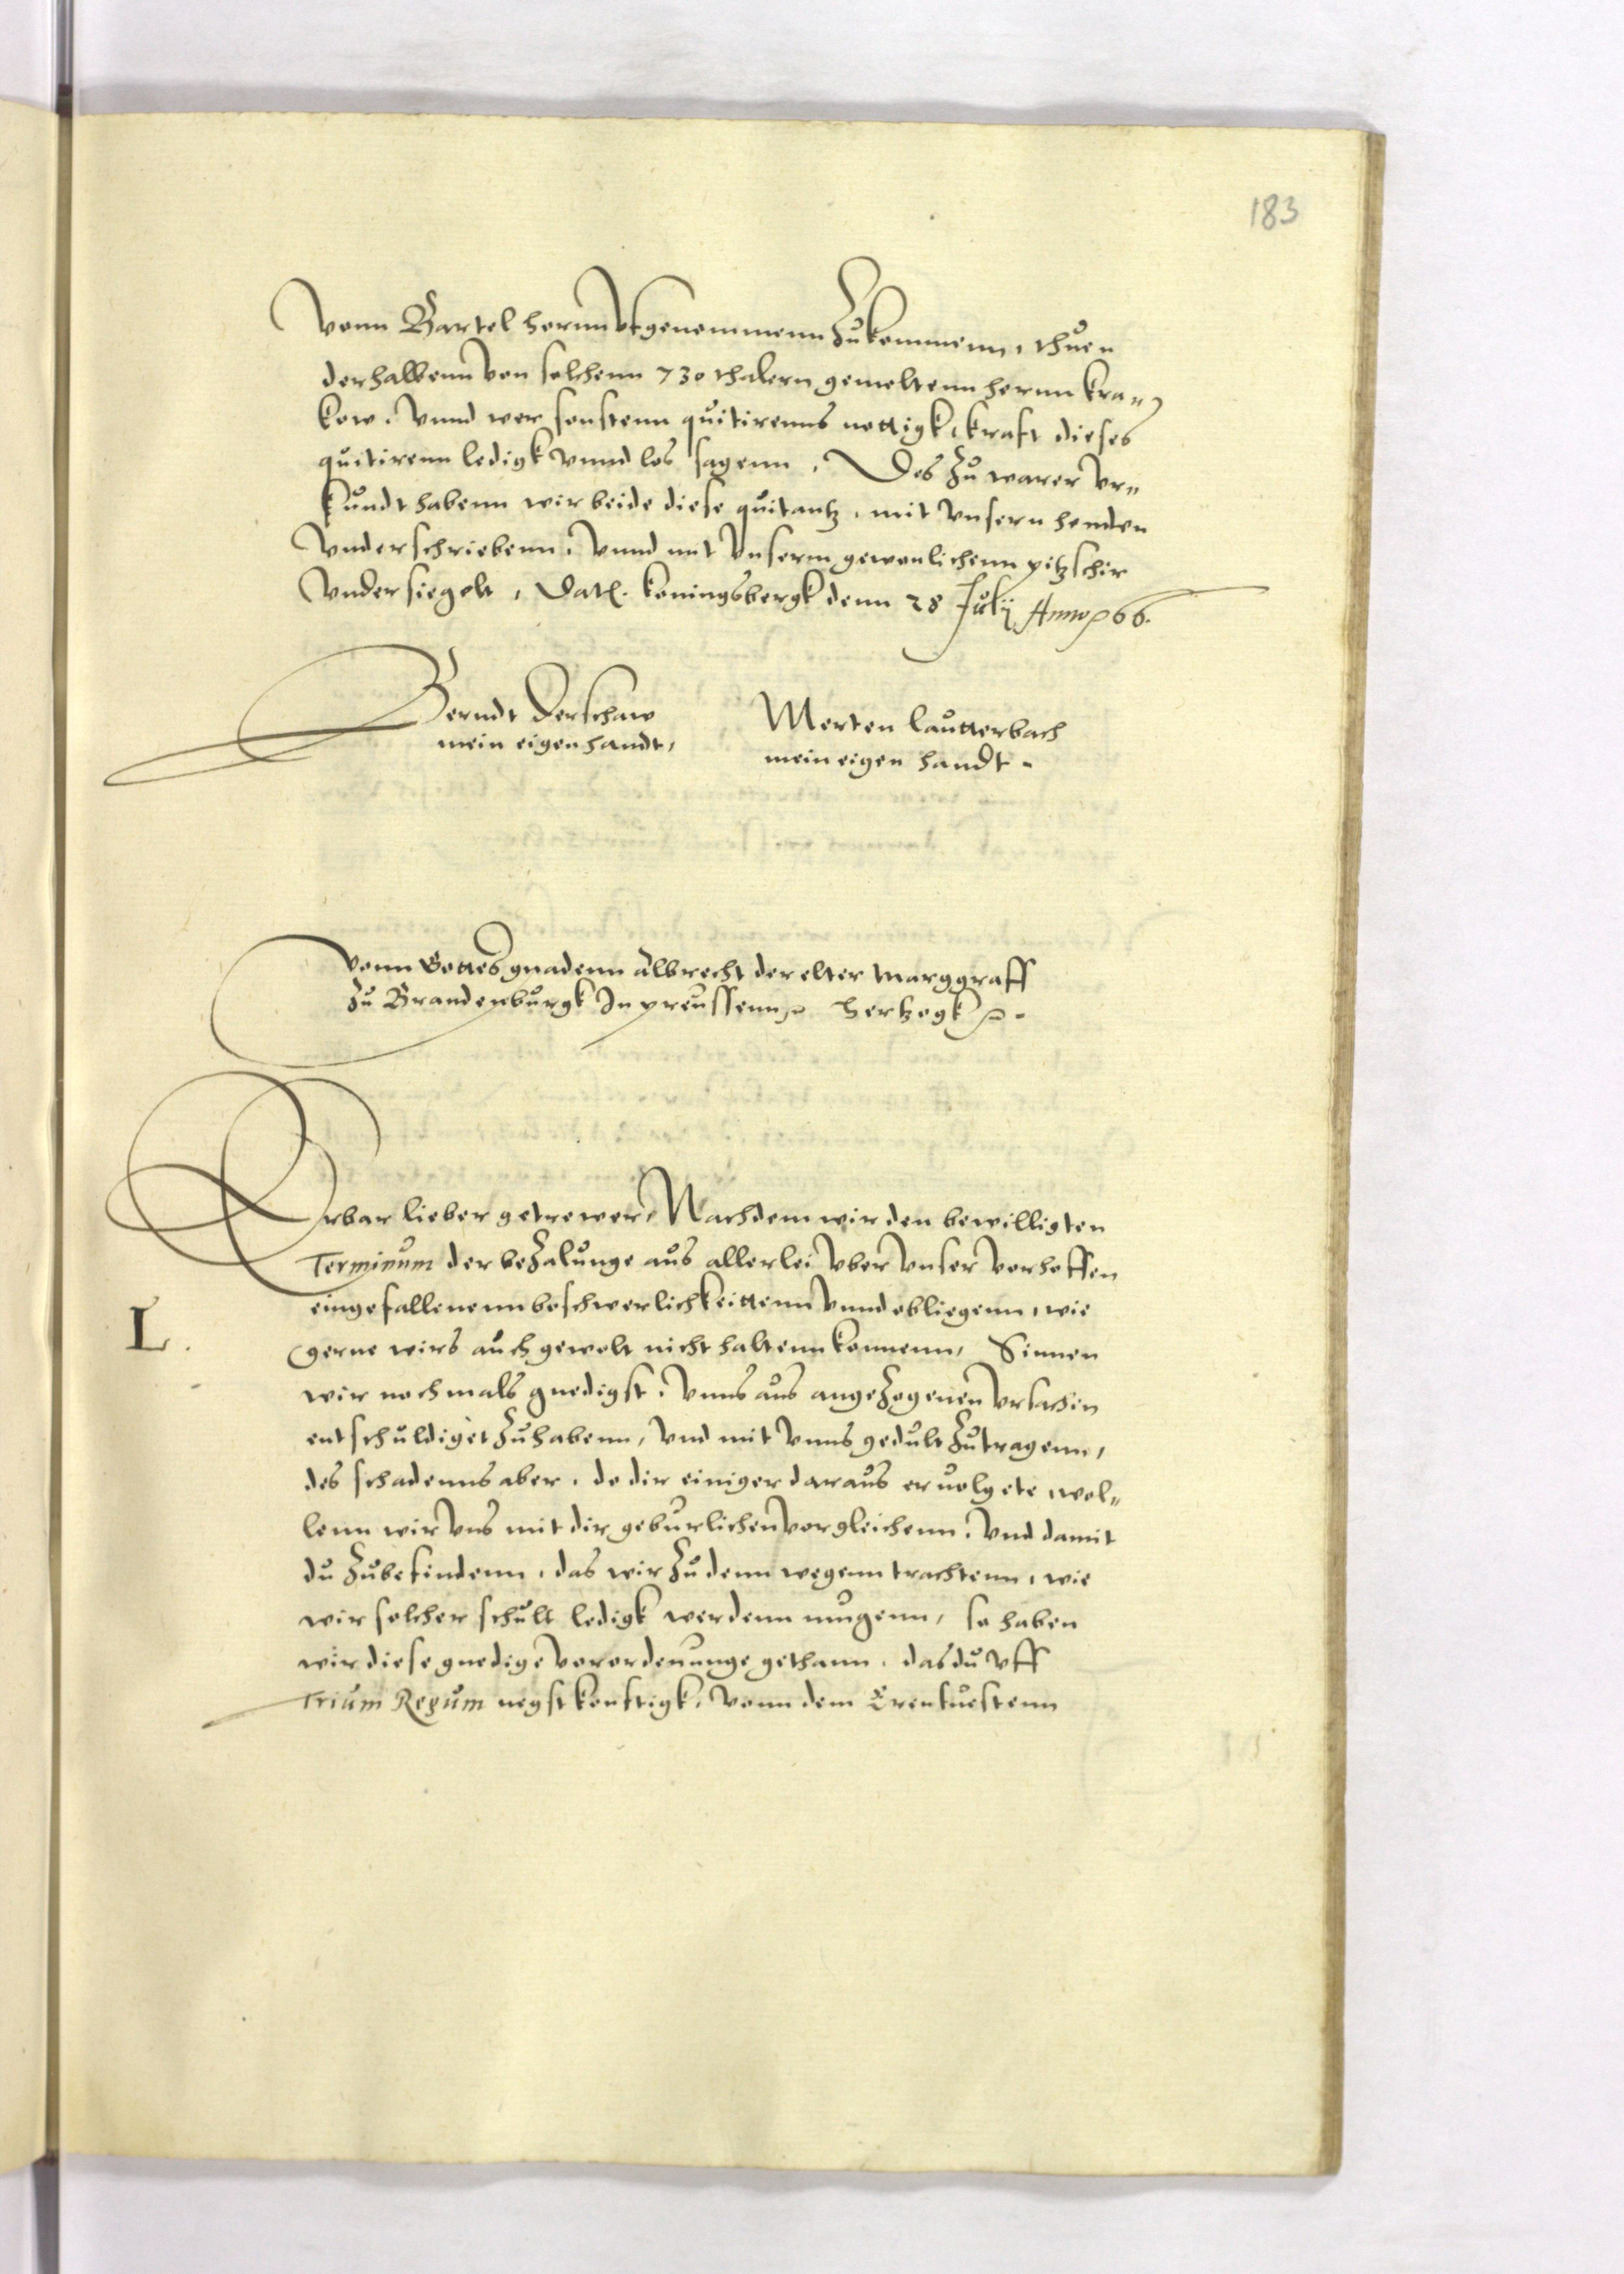 183
Vonn Bartel hernn vfgenommenn Zukommenn, thuen
derhalbenn von solchenn 730 thalern gemeltenn hernn kra„
kow. Vnnd wer sonstenn quitirenns nottigk, kraft dieses
quitirenn ledigk vnnd los sagenn. Des Zu warer vr„
kundt habenn wir beide diese quitantz, mit vnsern henden
vnderschriebenn, Vnnd mit vnserm gewonlichenn pitzschir
vndersiegelt, Datl. koningsbergk denn 28 July Anno 66.
Berndt Derschaw
mein eigen handt,
Merten lautterbach
mein eigen handt.
Vonn Gottes gnadenn albrecht der elter Marggraff
Zu Brandenburgk In preussenn hertzogk
Erbar lieber getrewer, Nachdem wir den bewilligten
Terminum der beZalunge aus allerlei vber vnser vorhoffen
eingefallenenn beschwerlichkeittenn vnnd obliegenn, wie
L.
gerne wirs auch gewolt nicht haltenn konnenn, Sinnen
wir nochmals gnedigst, vnns aus angeZogenen vrsachen
entschuldiget Zuhabenn, vnd mit vnns gedult Zutragenn,
des schadenns aber, do dir einiger daraus ervolgete, wol„
lenn wir vns mit dir geburlichen vorgleichenn, vnd damit
du Zubefindenn, das wir Zu denn wegenn trachtenn, wie
wir solcher schult ledigk werdenn mugenn, so haben
wir diese gnedige vorordenunge gethann, das du vff
Trium Regum negstkonftigk, vonn dem Erenvestenn